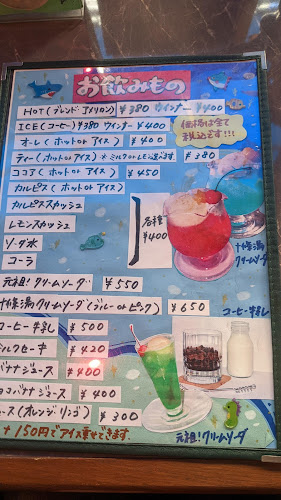 お飲みもの
HOT(ブレンド アメリカン) ¥380 ウインナー ¥400
ICE(コーヒー) ¥380 ウインナー ¥400
価格は全て税込みです!!!
オーレ(ホット or アイス) ¥400
ティー(ホット or アイス) *ミルク or レモン選べます ¥380
ココア(ホット or アイス) ¥450
カルピス(ホット or アイス)
カルピススカッシュ
レモンスカッシュ
ソーダ水
コーラ
各種 ¥400
十條湯
クリームソーダ
元祖!クリームソーダ ¥550
十條湯クリームソーダ(ブルー or ピンク) ¥650
コーヒー牛乳
コーヒー牛乳 ¥500
ミルクセーキ ¥420
バナナジュース ¥400
チョコバナナジュース ¥400
ュース(オレンジ リンゴ) ¥300
+150円でアイス乗せできます
元祖!クリームソーダ